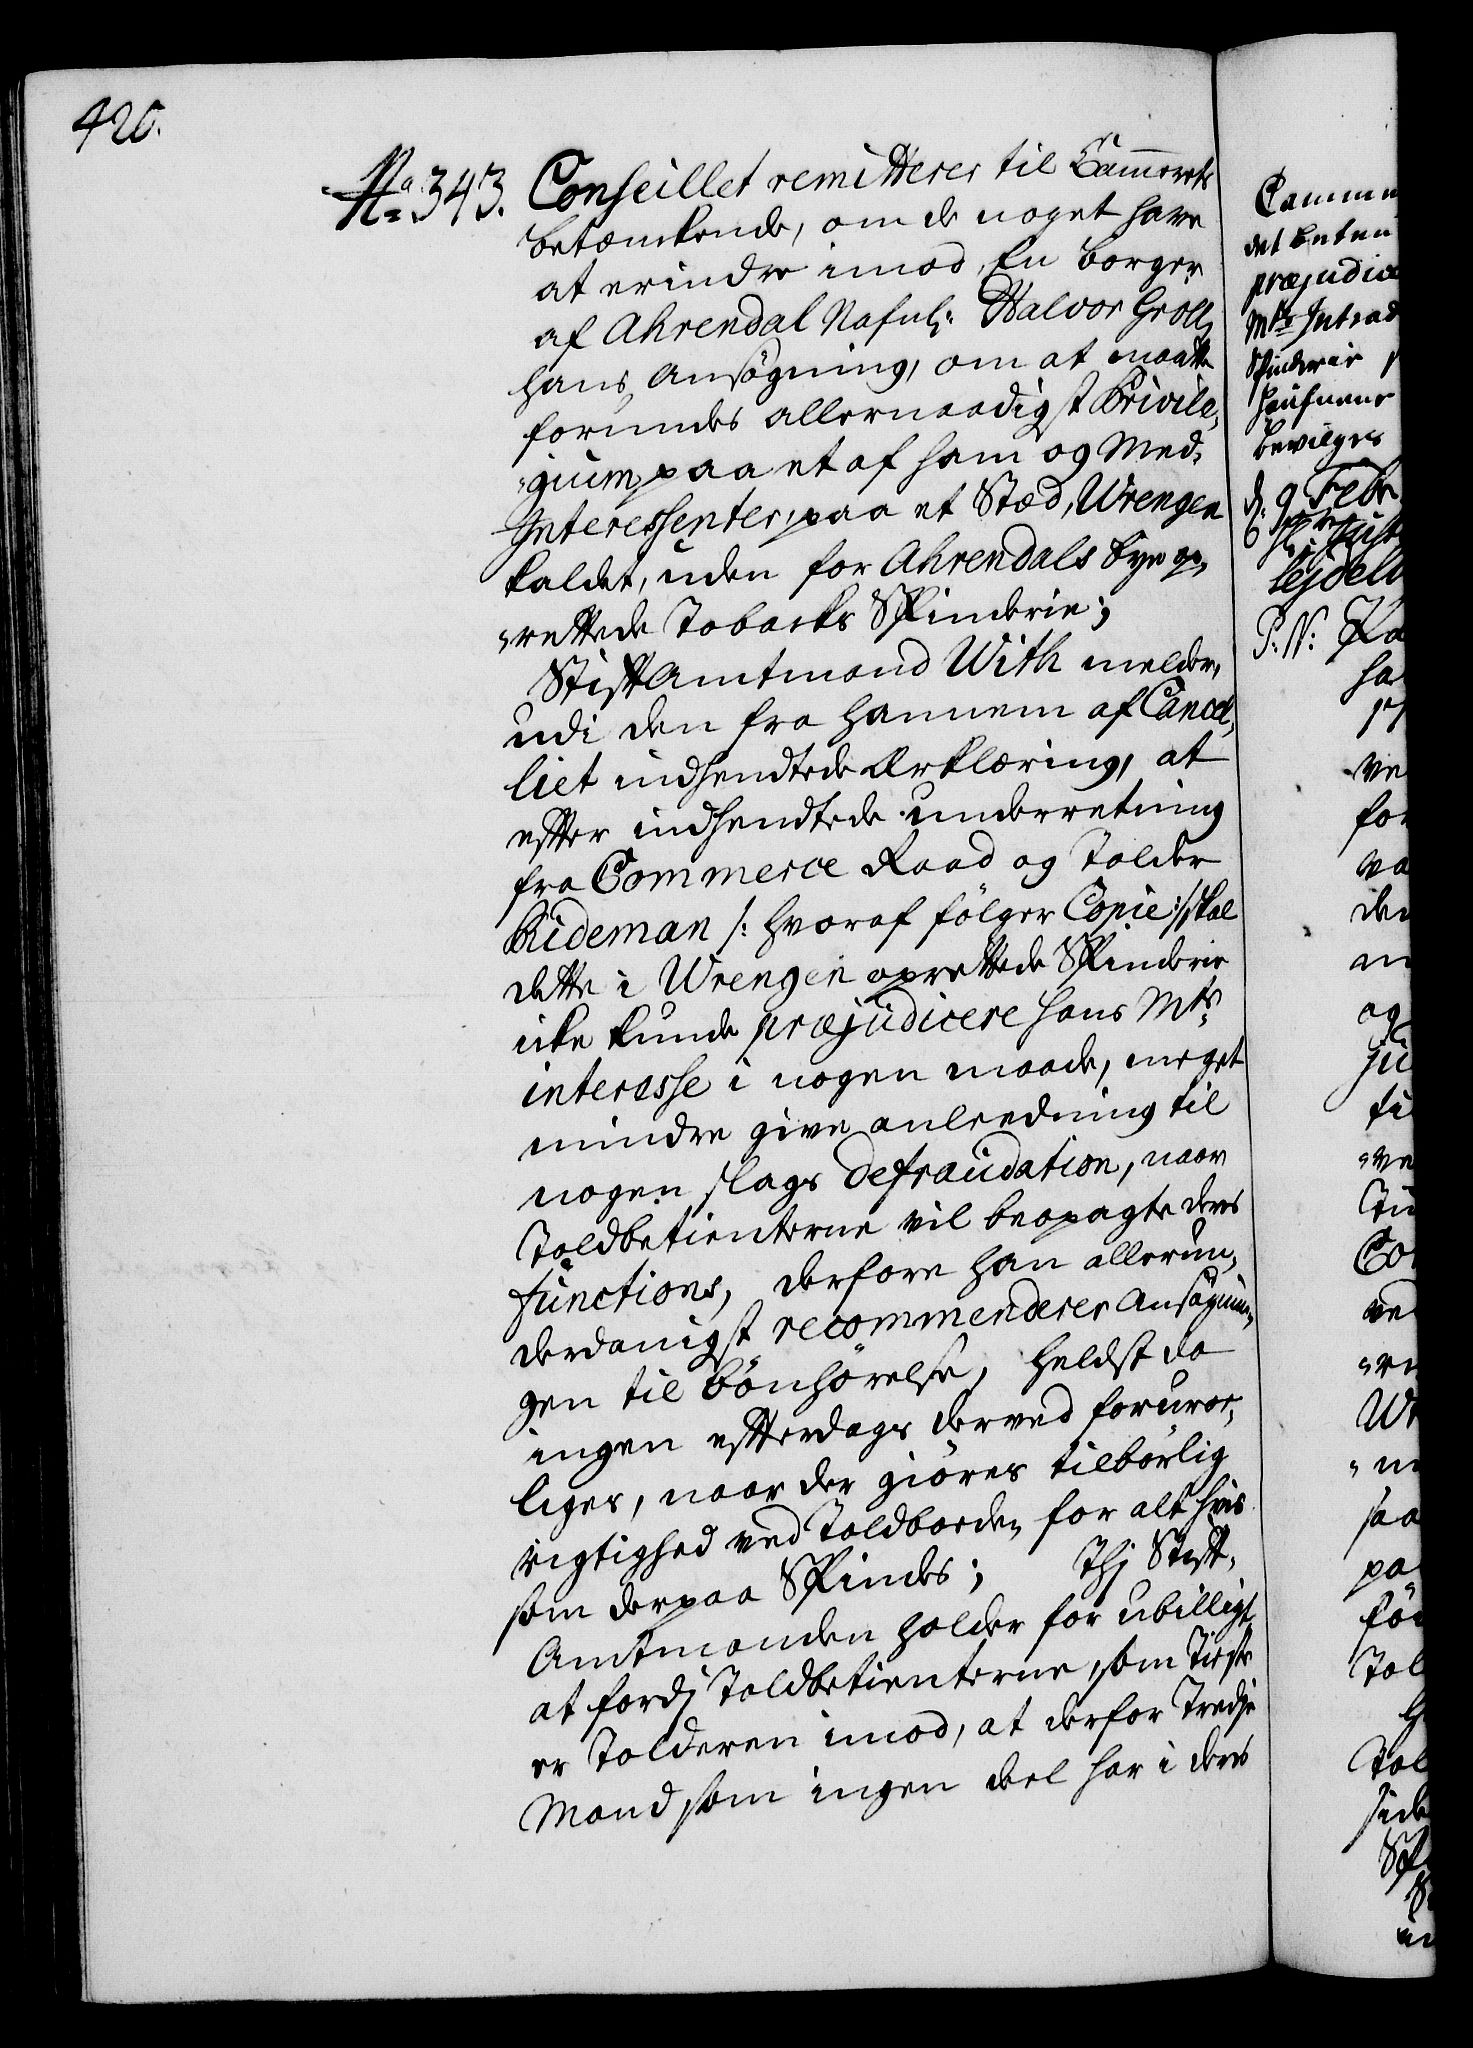 420.
No. 343. Conseillet remitterer til Cammerets
betænkende, om de noget have
at erindre imod, En borger
af Ahrendal Nafnl: Halvor Groll,
hans Ansøgning, om at maatte
forundes allernaadigst Privile,
„gium, paa et af ham og Med,
Interessenter, paa et Stæd, Wrengen
kaldet, uden for Ahrendals bye op,
„rettede Tobacks Spinderie;
StiftAmtmand With melder,
udi den fra hannem af Cancel,
liet indhendtede Erklæring, at
efter indhendtede underretning
fra Commerce Raad og Tolder
Rideman /: hvoraf følger Copie :/ skal
dette i Wrengen oprettede Spinderie
icke kunde præjudicere hans Mts
interesse i nogen maade, meget
mindre give anleedning til
nogen slags defraudation, naar
Toldbetienterne vil beopagte deres
functions, derfore han allerun,
derdanigst recommenderer Ansøgnin,
gen til bønhørelse, heldst da
ingen efterdags derved foruroe,
liges, naar der giøres tilbørlig
rigtighed ved Toldboeden for alt hvis
som derpaa Spindes; Thj Stift,
Amtmanden holder for ubilligt
at fordj Toldbetienterne, som
er Tolderen imod, at derfor Tredje
Mand som ingen deel har i deres
Camme
det beten
præjudice
Mts Intrad
Spinderie
bevilges
d. 9 Febr
P: N: